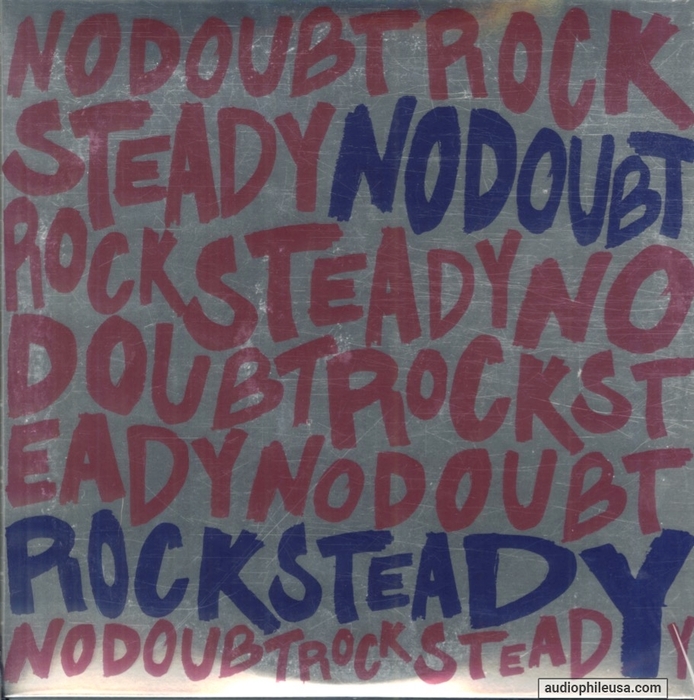 NODOUBTROCK
STEADYNODOUBT
ROCKSTEADYNO
DOUBTROCKST
EADYNODOUBT
ROCKSTEADY
NODOUBTROCKSTEADY
audiophileusa.com